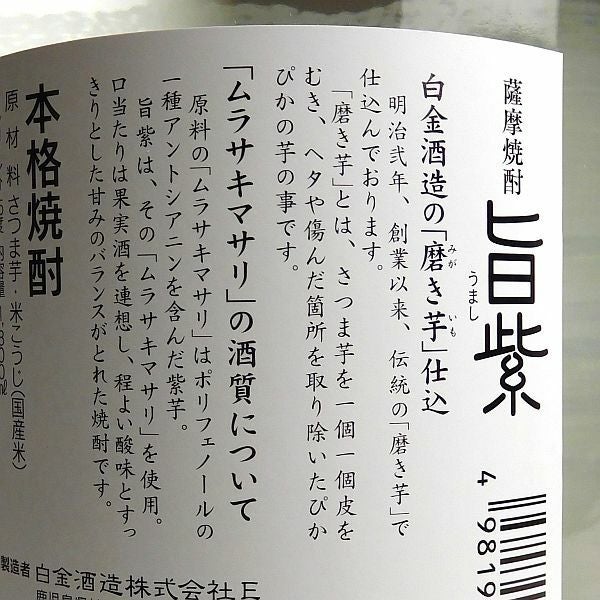 薩摩焼酎
旨紫
うまし
白金酒造の「磨き芋」仕込
みが いも
明治弐年、創業以来、伝統の「磨き芋」で
仕込んでおります。
「磨き芋」とは、さつま芋を一個一個皮を
むき、ヘタや傷んだ箇所を取り除いたぴか
ぴかの芋の事です。
「ムラサキマサリ」の酒質について
原料の「ムラサキマサリ」はポリフェノールの
一種アントシアニンを含んだ紫芋。
旨紫は、その「ムラサキマサリ」を使用。
口当たりは果実酒を連想し、程よい酸味とすっ
きりとした甘みのバランスがとれた焼酎です。
本格焼酎
原材料 さつま芋・米こうじ(国産米)
内容量 1,800ml
製造者 白金酒造株式会社
4 9819